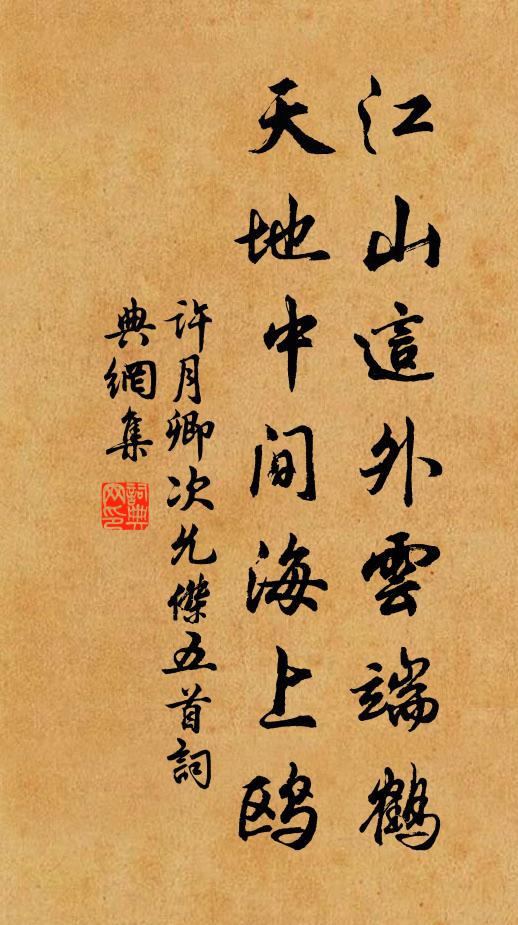 江山這外雲端鶴
天地中間海上鸥
許月卿次允傑五首詞
典網集
詞典
网印